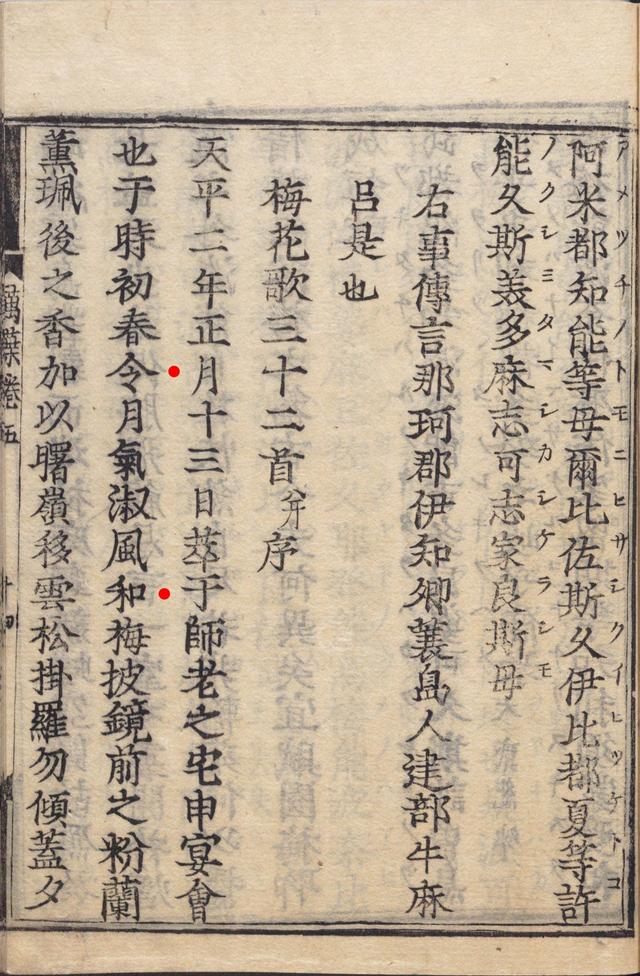 アメツチノトモニヒサシクイヒツケトコ
阿米都知能等母爾比佐斯久伊比都夏等許
ノクシミタマシカシケラシモ
能久斯美多麻志可志家良斯母
右事傳言那珂郡伊知郷蓑島人建部牛麻
呂是也
梅花歌三十二首并序
天平二年正月十三日萃于師老之宅申宴會
也于時初春令月氣淑風和梅披鏡前之粉蘭
薫珮後之香加以曙嶺移雲松掛羅勿傾蓋夕
萬葉卷五
十四